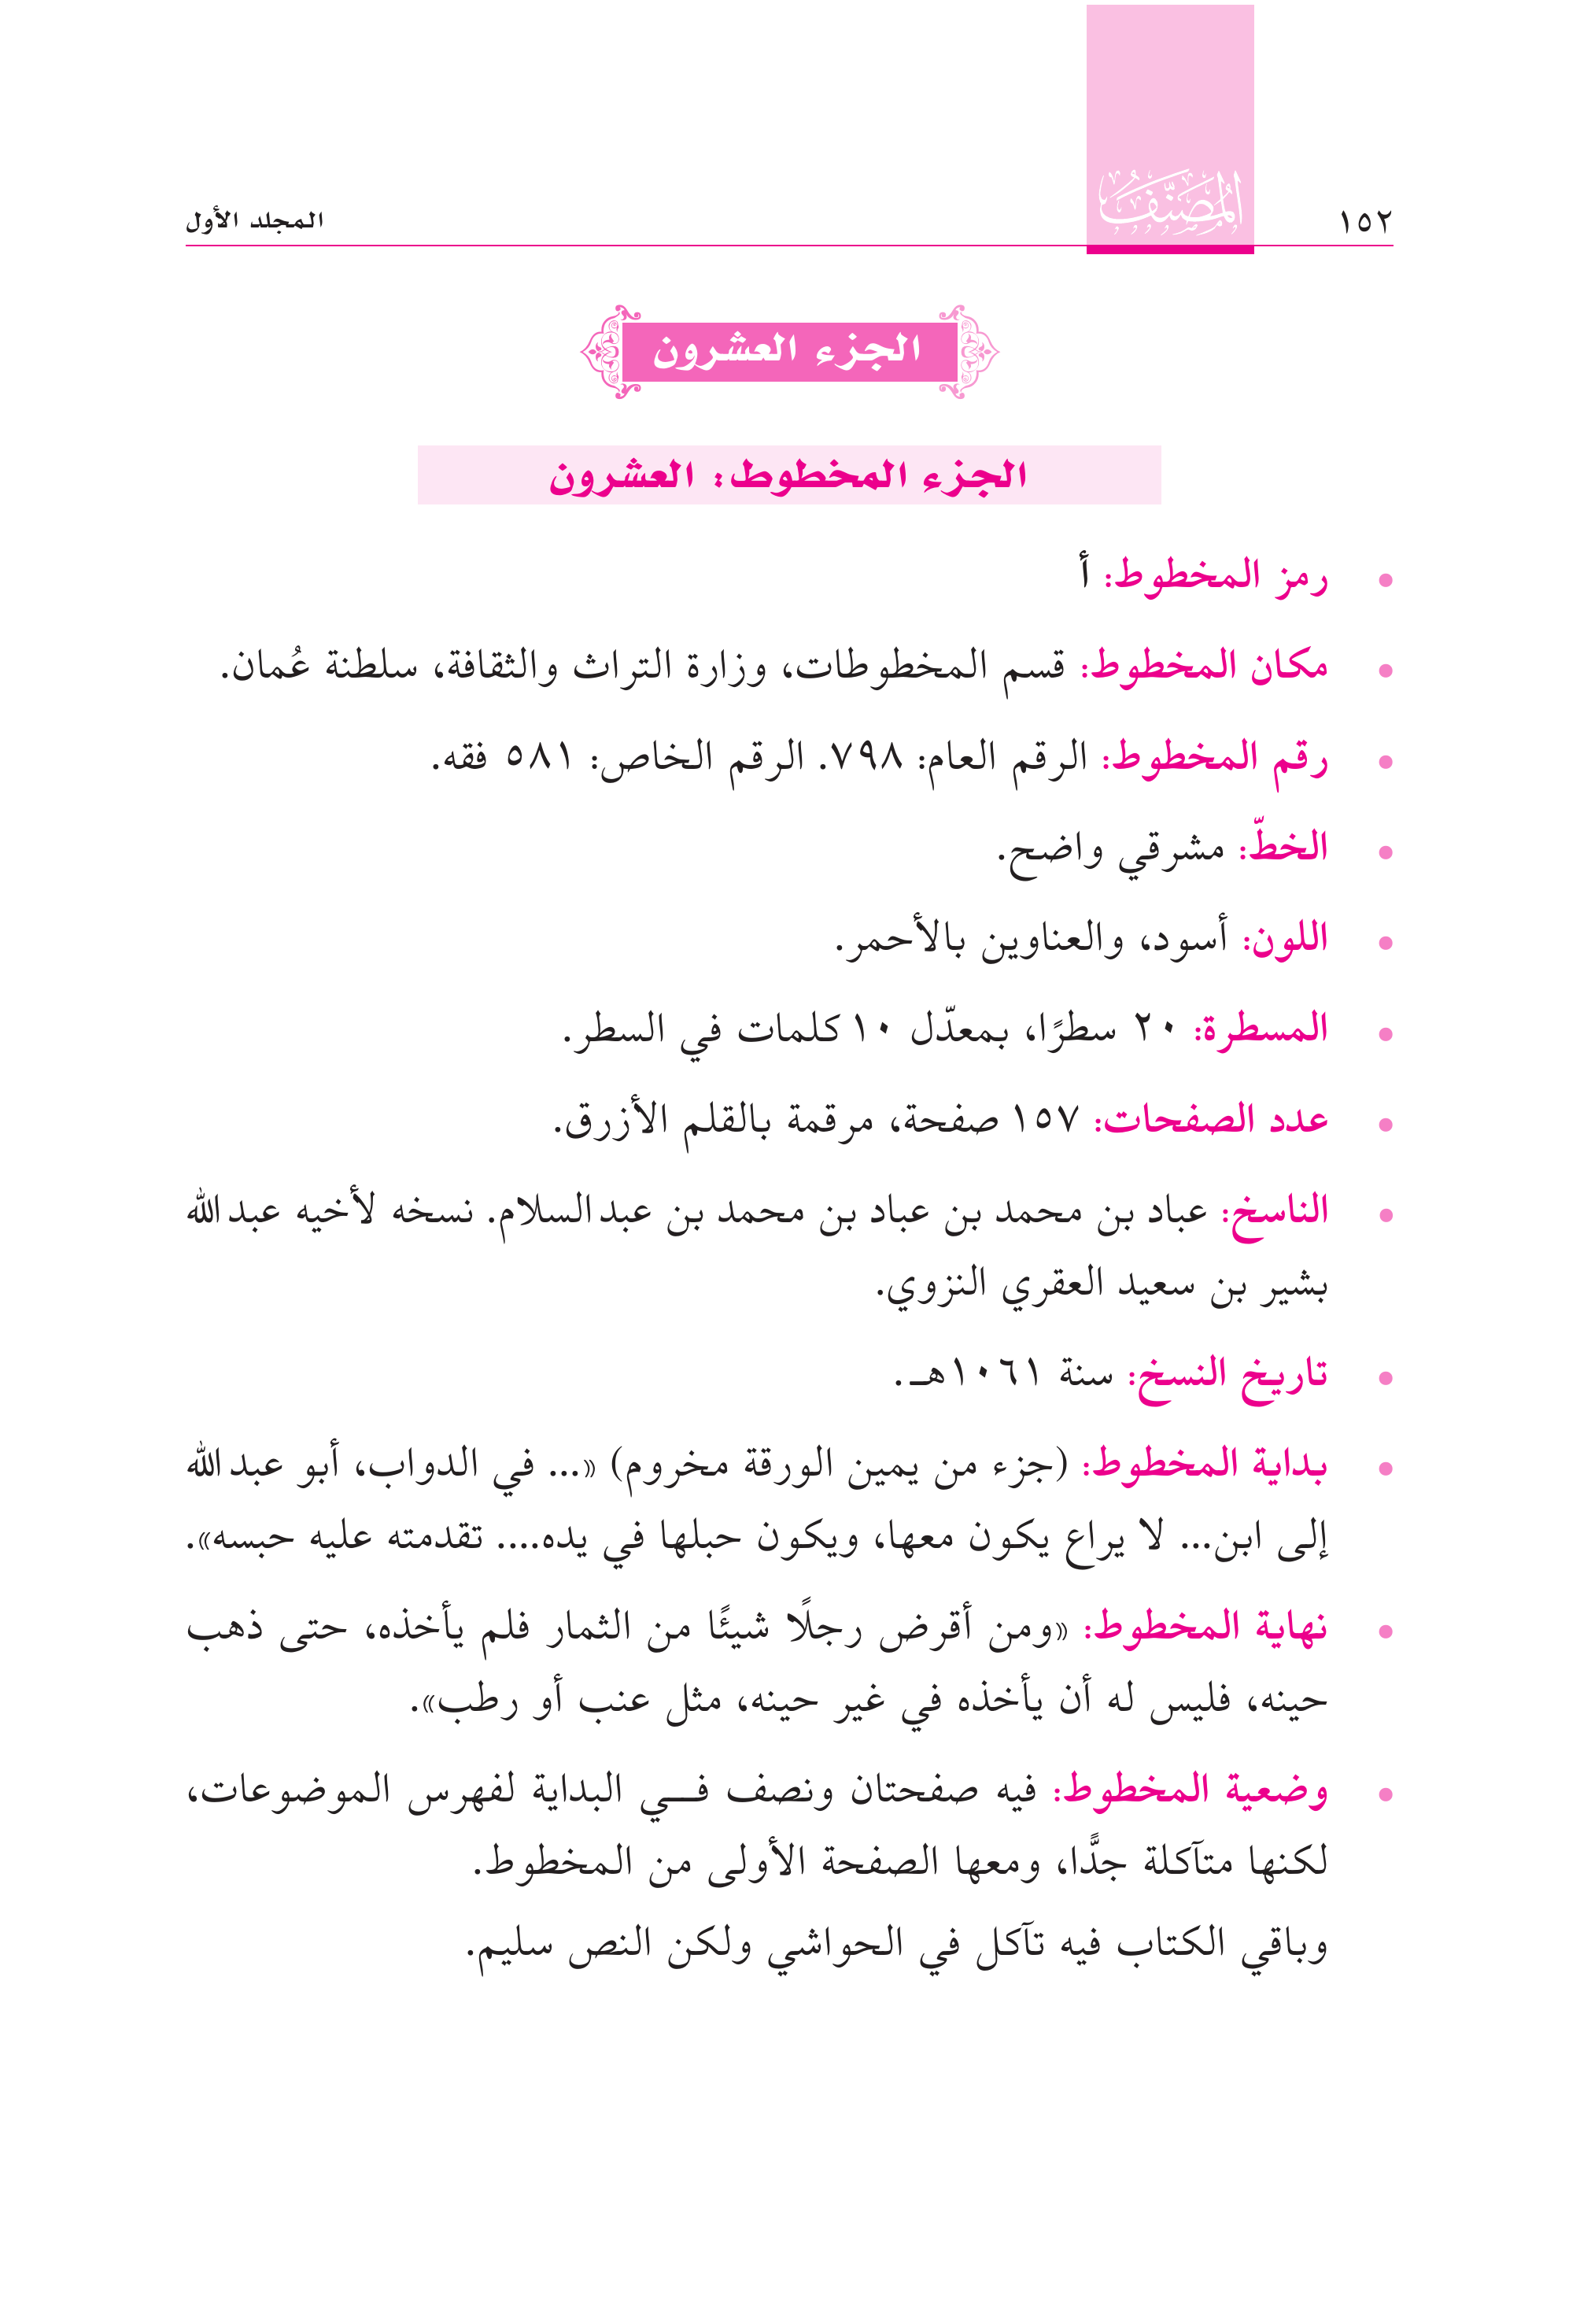 ١٥٢
المُصَنَّفُ
المجلد الأول
الجزء العشرون
الجزء المخطوط: العشرون
• رمز المخطوط: أ
• مكان المخطوط: قسم المخطوطات، وزارة التراث والثقافة، سلطنة عُمان.
• رقم المخطوط: الرقم العام: ٧٩٨. الرقم الخاص: ٥٨١ فقه.
• الخطّ: مشرقي واضح.
• اللون: أسود، والعناوين بالأحمر.
• المسطرة: ٢٠ سطرًا، بمعدّل ١٠ كلمات في السطر.
• عدد الصفحات: ١٥٧ صفحة، مرقمة بالقلم الأزرق.
• الناسخ: عباد بن محمد بن عباد بن محمد بن عبدالسلام. نسخه لأخيه عبدالله
بشير بن سعيد العقري النزوي.
• تاريخ النسخ: سنة ١٠٦١هـ.
• بداية المخطوط: (جزء من يمين الورقة مخروم) «... في الدواب، أبو عبدالله
إلى ابن... لا يراع يكون معها، ويكون حبلها في يده.... تقدمته عليه حبسه».
• نهاية المخطوط: «ومن أقرض رجلًا شيئًا من الثمار فلم يأخذه، حتى ذهب
حينه، فليس له أن يأخذه في غير حينه، مثل عنب أو رطب».
• وضعية المخطوط: فيه صفحتان ونصف فـــي البداية لفهرس الموضوعات،
لكنها متآكلة جدًّا، ومعها الصفحة الأولى من المخطوط.
وباقي الكتاب فيه تآكل في الحواشي ولكن النص سليم.